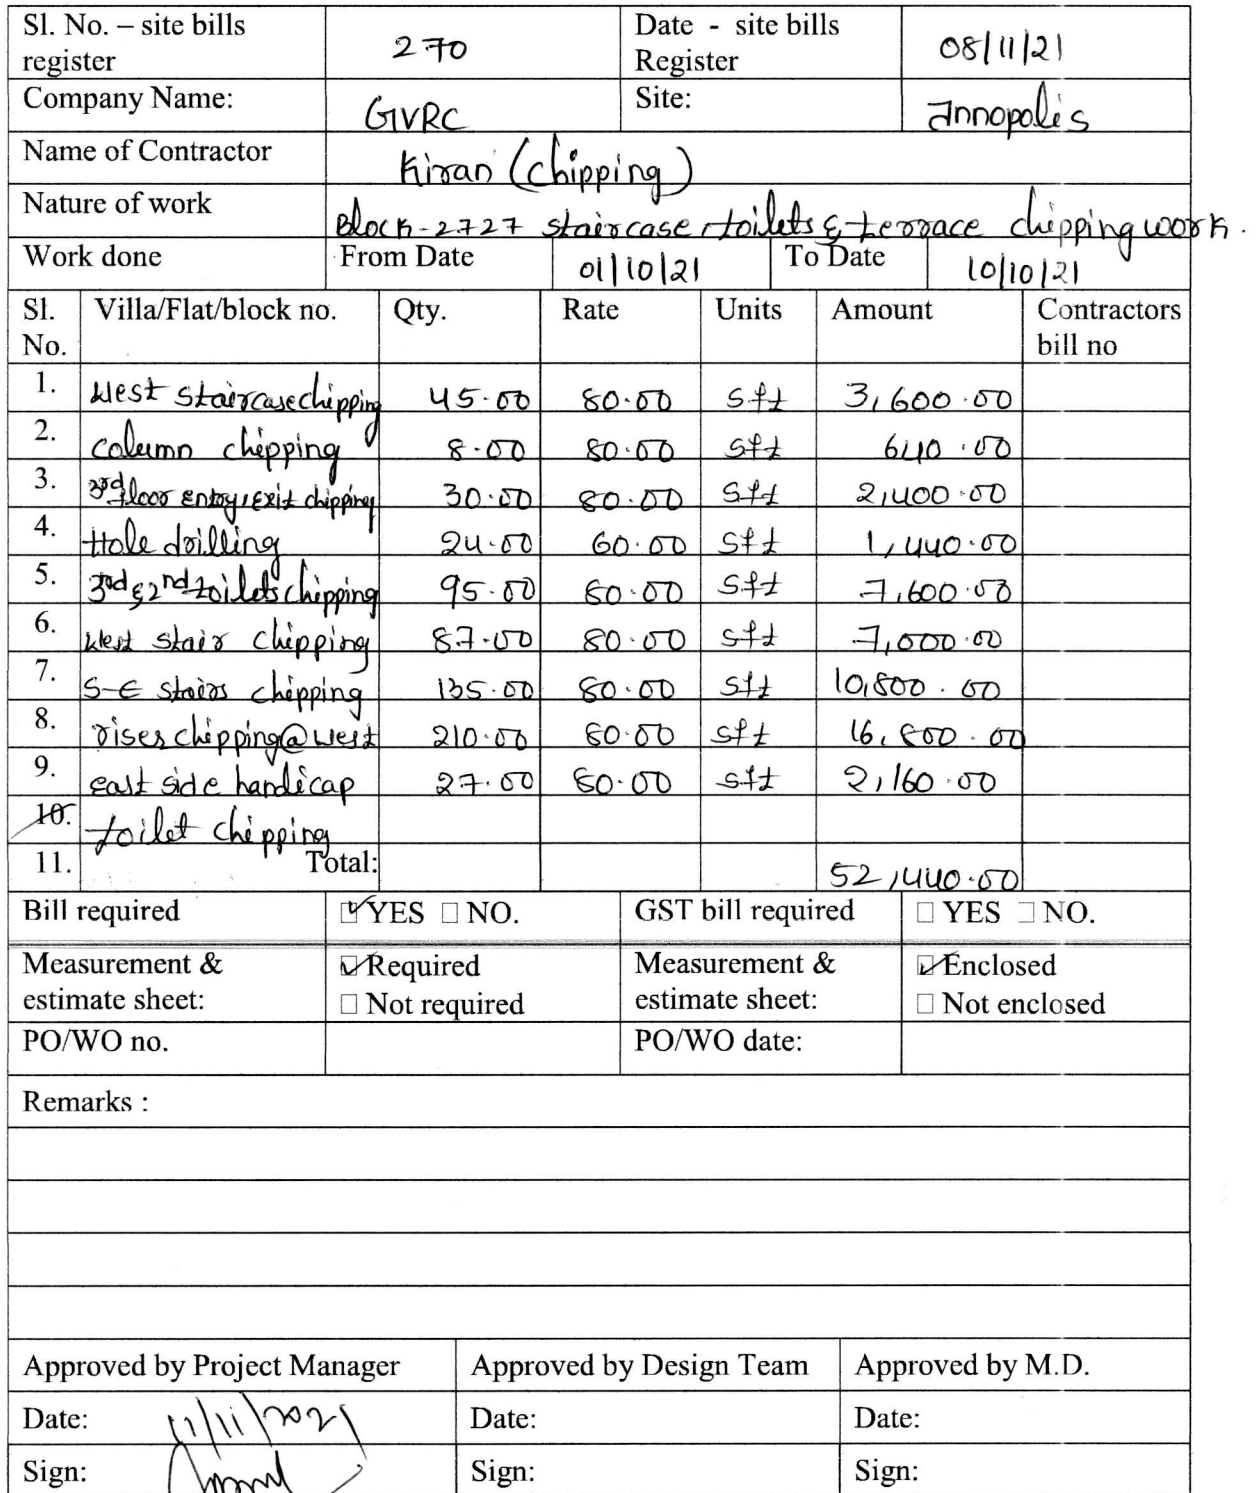 Sl. No. – site bills register 270 Date - site bills Register 08/11/21
Company Name: GVRC Site: Innopolis
Name of Contractor Kiran (chipping)
Nature of work Block-2727 staircase, toilets & terrace chipping work.
Work done From Date 01/10/21 To Date 10/10/21
Sl. No. Villa/Flat/block no. Qty. Rate Units Amount Contractors bill no
1. West staircase chipping 45.00 80.00 sft 3,600.00
2. column chipping 8.00 80.00 sft 640.00
3. 3rd floor entry, exit chipping 30.00 80.00 sft 2,400.00
4. Hole drilling 24.00 60.00 sft 1,440.00
5. 3rd & 2nd toilets chipping 95.00 80.00 sft 7,600.00
6. West stair chipping 87.00 80.00 sft 7,000.00
7. S-E stairs chipping 135.00 80.00 sft 10,800.00
8. rises chipping @ west 210.00 80.00 sft 16,800.00
9. east side handicap 27.00 80.00 sft 2,160.00
10. toilet chipping
11. Total: 52,440.00
Bill required ☑ YES ☐ NO. GST bill required ☐ YES ☐ NO.
Measurement & estimate sheet: ☑ Required ☐ Not required Measurement & estimate sheet: ☑ Enclosed ☐ Not enclosed
PO/WO no. PO/WO date:
Remarks :
Approved by Project Manager Approved by Design Team Approved by M.D.
Date: 11/11/2021 Date: Date:
Sign: Sign: Sign: